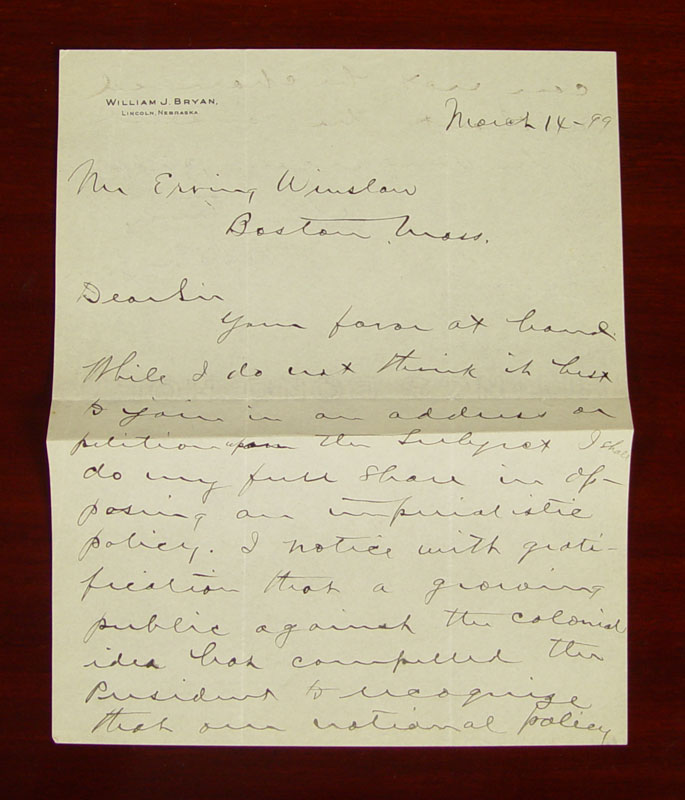 WILLIAM J. BRYAN,
LINCOLN, NEBRASKA
March 14-99
Mr Erving Winslow
Boston Mass.
Dear Sir
Your favor at hand
While I do not think it best
to join in an address or
petition upon the subject I shall
do my full share in op-
posing an imperialistic
policy. I notice with grati-
fication that a growing
public against the colonial
idea has compelled the
President to recognize
that our national policy